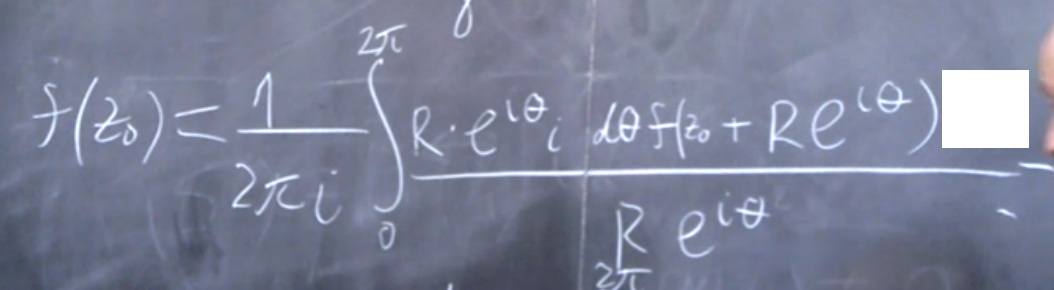 f(z₀) = 1/(2πi) ∫₀^{2π} (R·e^{iθ} i dθ f(z₀ + Re^{iθ}))/(R e^{iθ}) =
2π